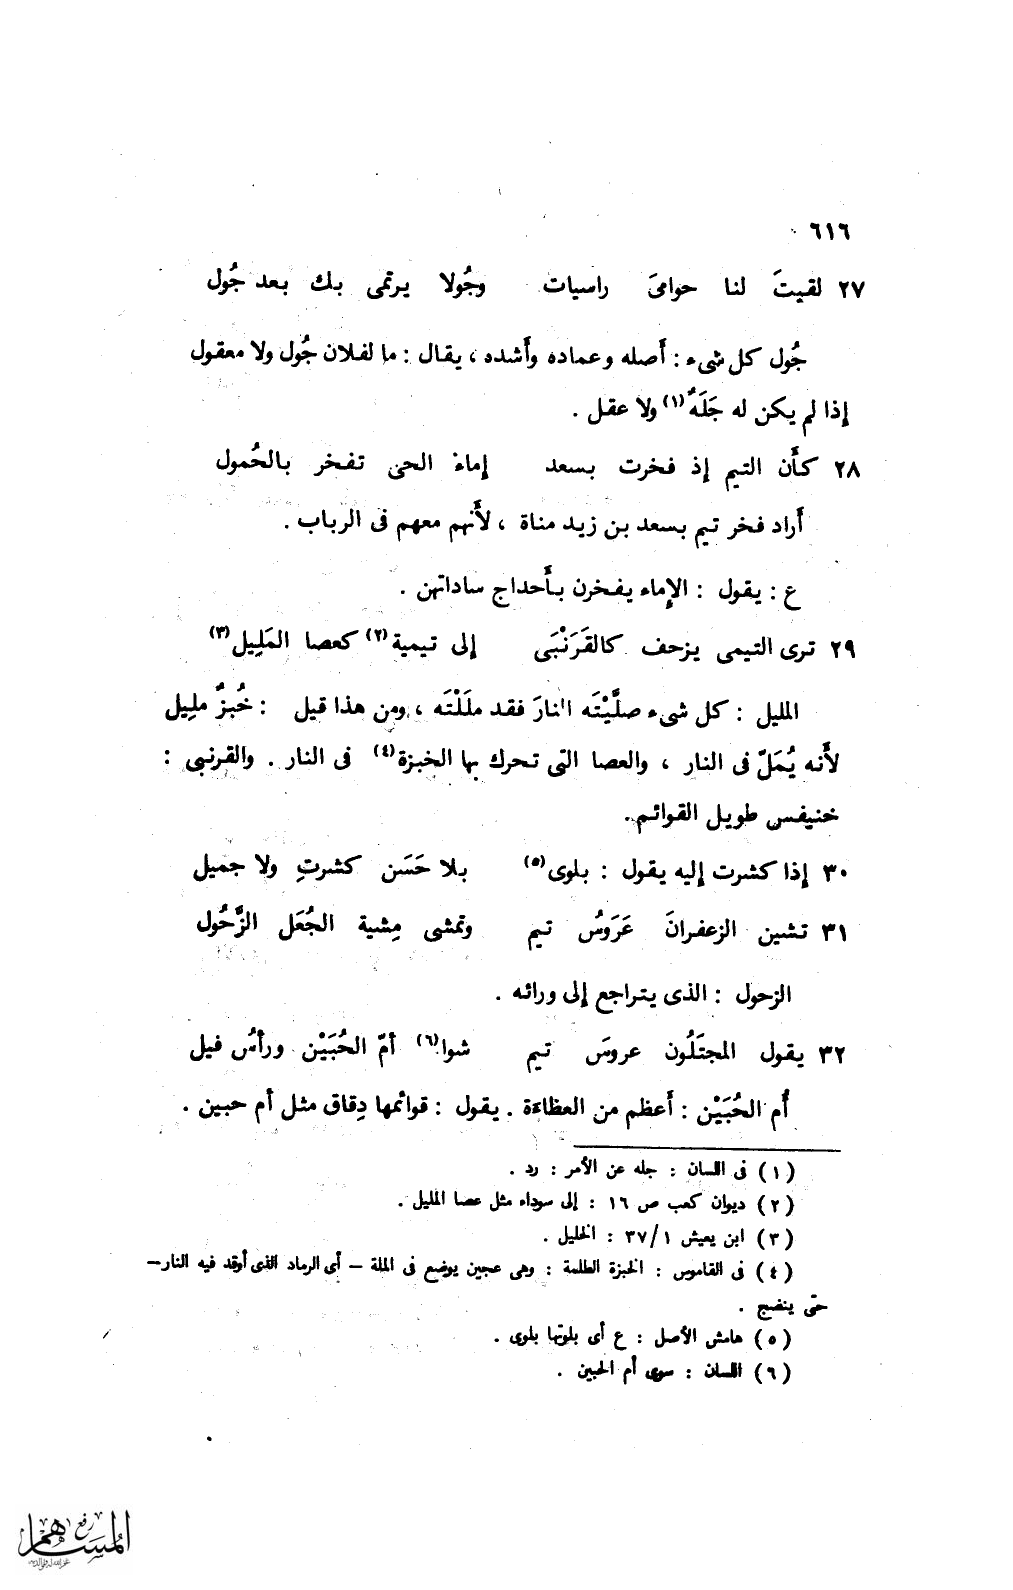 ٦١٦
٢٧ لقيتَ لنا حوامىَ راسيات وجُولا يرتمى بك بعد جُول
جُول كل شىء : أَصله وعماده وأَشده ، يقال : ما لفلان جُول ولا معقول
إذا لم يكن له جَلَهٌ (١) ولا عقل .
٢٨ كأَن التيم إذ فخرت بسعد إماءُ الحى تفخر بالحُمول
أَراد فخر تيم بسعد بن زيد مناة ، لأَنهم معهم فى الرباب .
ع : يقول : الإِماء يفخرن بأَحداج ساداتهن .
٢٩ ترى التيمى يزحف كالقَرَنْبَى إلى تيمية (٢) كعصا المَلِيل (٣)
المليل : كل شىء صلَّيْتَه النارَ فقد ملَلْتَه ، ومن هذا قيل : خُبزٌ مليل
لأَنه يُمَلّ فى النار ، والعصا التى تحرك بها الخبزة (٤) فى النار . والقرنبى :
خنيفس طويل القوائم .
٣٠ إذا كشرت إليه يقول : بلوى (٥) بلا حَسَن كشرتِ ولا جميل
٣١ تشين الزعفرانَ عَرَوسُ تيم وتمشى مِشية الجُعَل الزَّحُول
الزحول : الذى يتراجع إلى ورائه .
٣٢ يقول المجتَلُون عروسَ تيم شوا (٦) أمّ الحُبَيْن ورأسُ فيل
أُم الحُبَيْن : أَعظم من العظاءة . يقول : قوائمها دِقاق مثل أم حبين .
(١) فى اللسان : جله عن الأمر : رد .
(٢) ديوان كعب ص ١٦ : إلى سوداء مثل عصا المليل .
(٣) ابن يعيش ٣٧/١ : الخليل .
(٤) فى القاموس : الخبزة الطلمة : وهى عجين يوضع فى الملة – أى الرماد الذى أوقد فيه النار –
حتى ينضج .
(٥) هامش الأصل : ع أى بلوتها بلوى .
(٦) اللسان : سوى أم الحبين .
رفع
المساهم